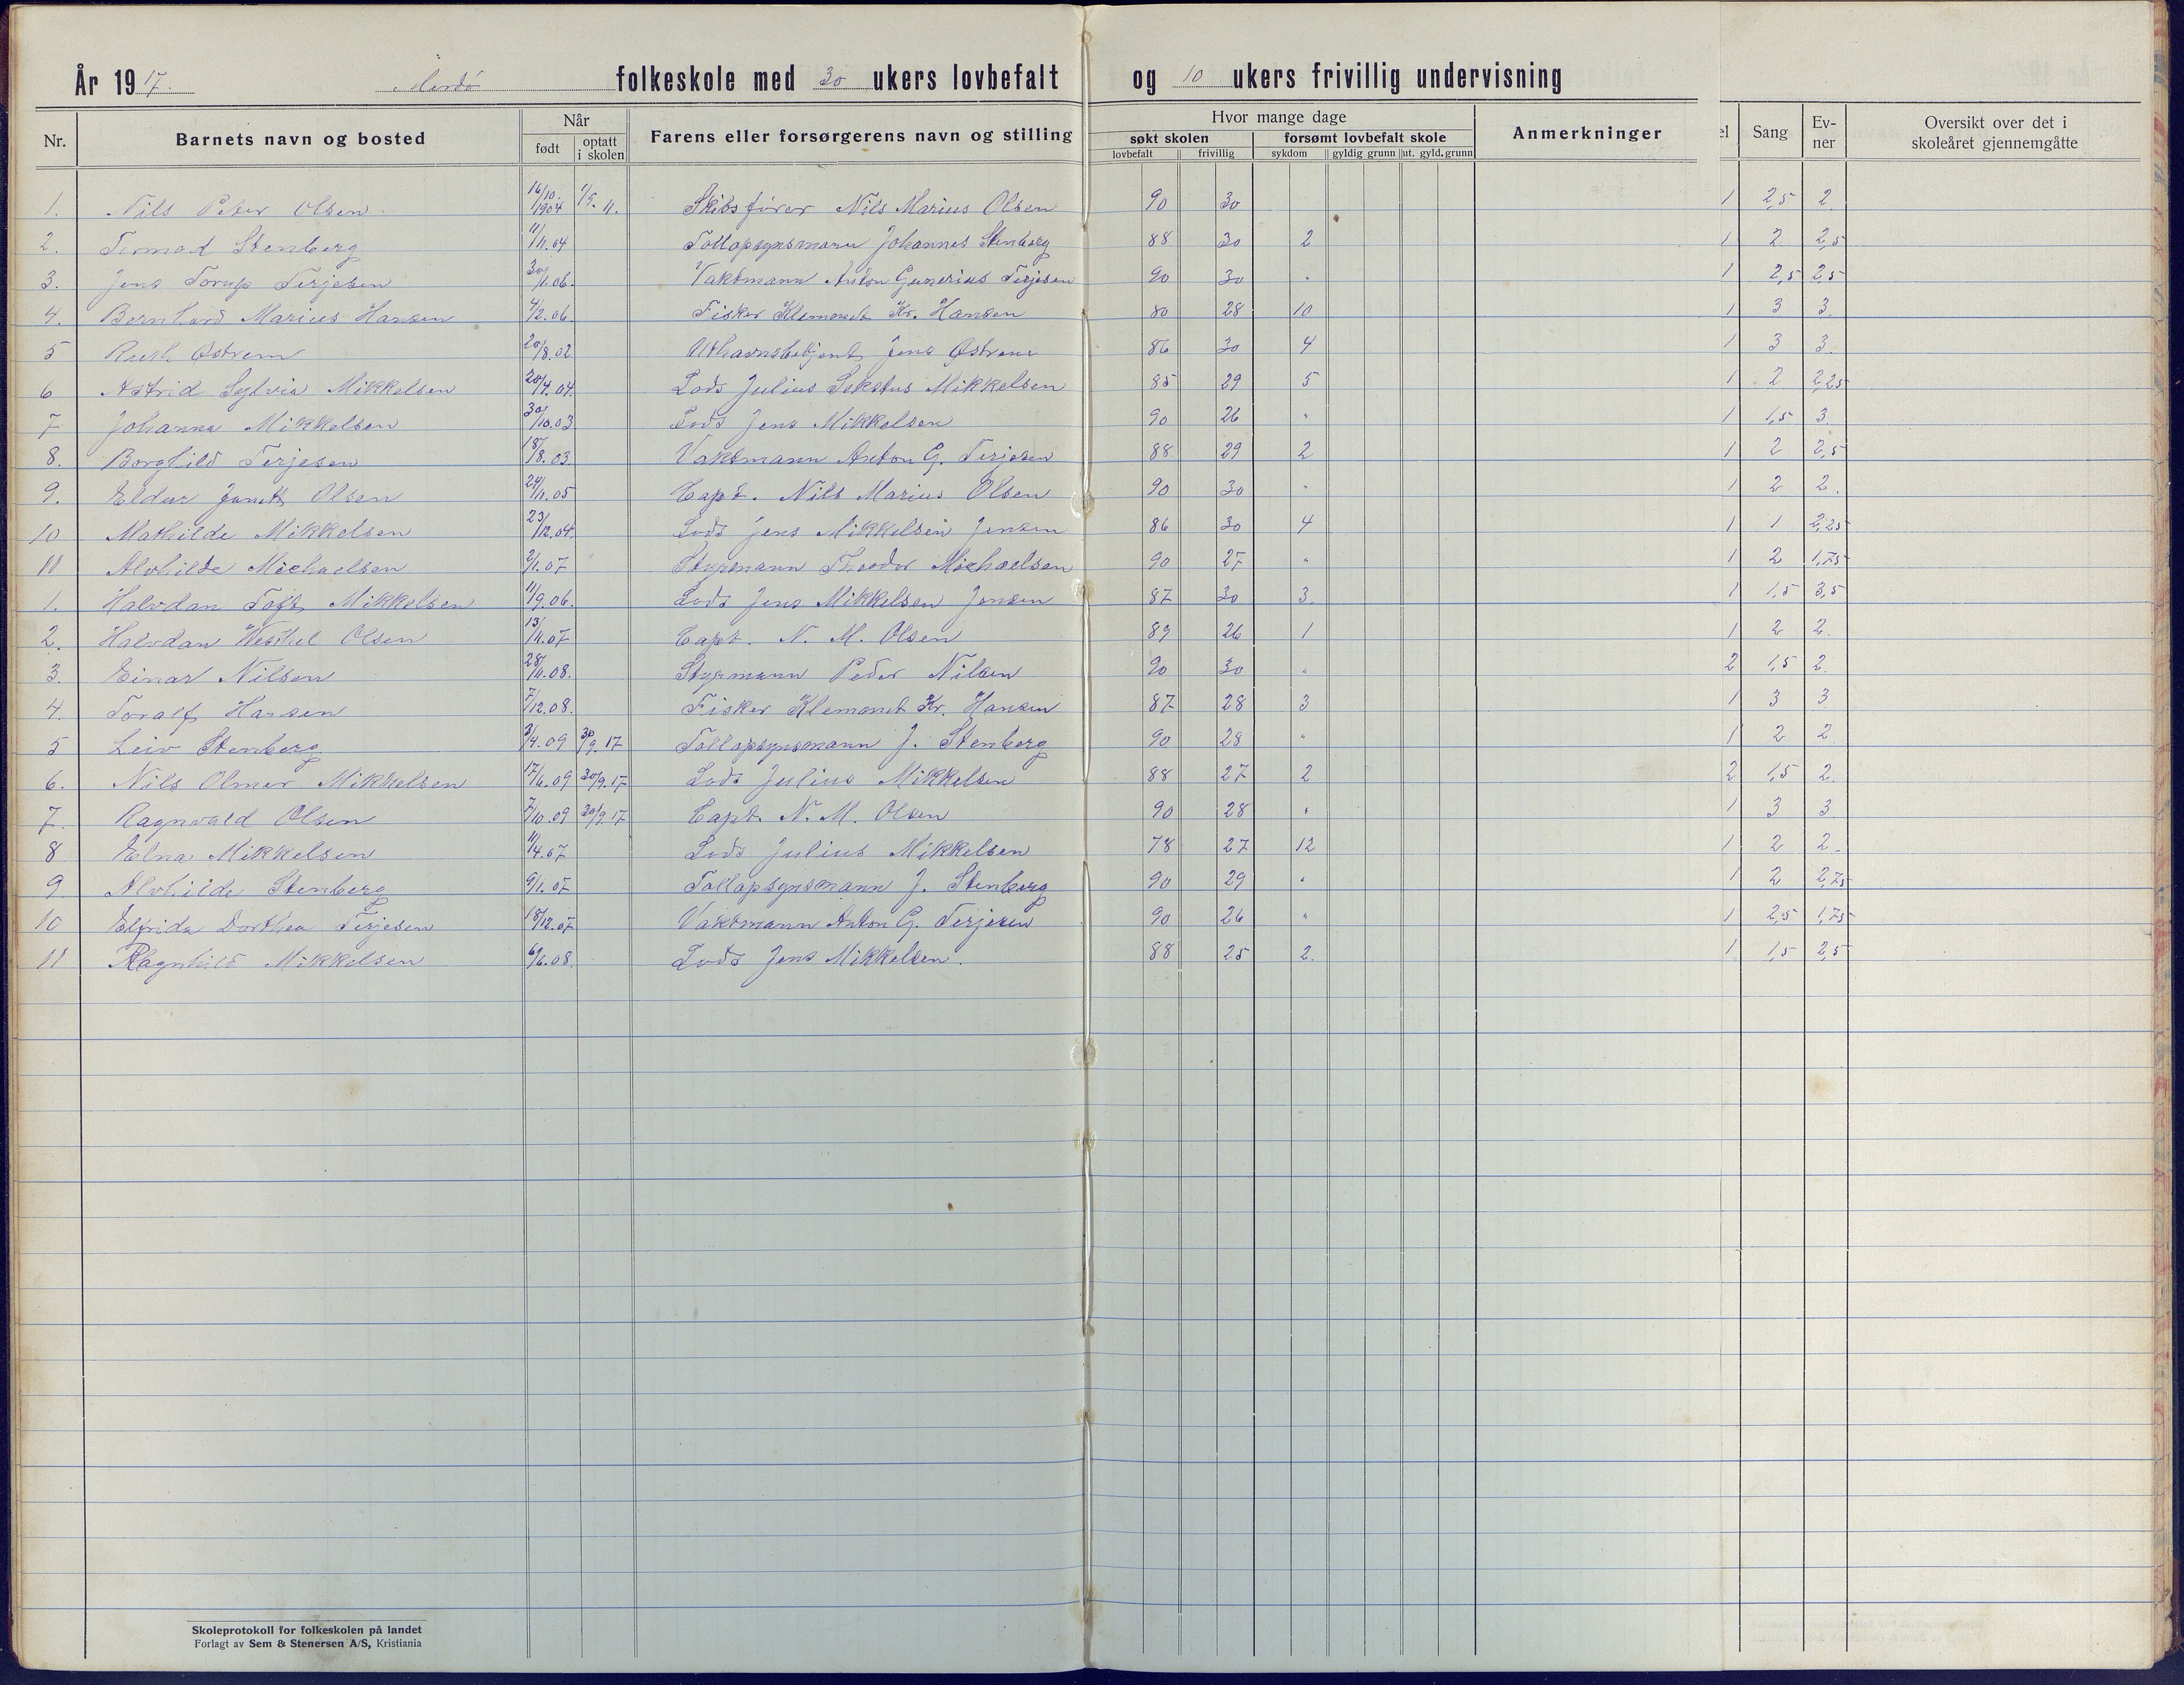 År 1917. Merdø folkeskole med 30 ukers lovbefalt og 10 ukers frivillig undervisning
Nr. Barnets navn og bosted Når født optatt i skolen Farens eller forsørgerens navn og stilling Hvor mange dage søkt skolen lovbefalt frivillig forsømt lovbefalt skole sykdom gyldig grunn ut. gyld. grunn Anmerkninger el Sang Ev-ner Oversikt over det i skoleåret gjennemgåtte
1. Nils Peter Olsen 16/10. 1904 1/9. 11. Skibsfører Nils Marius Olsen 90 30 1 2,5 2
2. Stenberg 11/11.04 Tollopsynsmann Johannes Stenberg 88 30 2 1 2 2,5
3. Jens Torup Terjesen 30/1.06. Vaktmann Anton Gunerius Terjesen 90 30 " 1 2,5 2,5
4. Bernhard Marius Hansen 4/2.06 Fisker Klemmet Kr. Hansen 80 28 10 1 3 3.
5 Ruth Østrem 20/8.02 Uthavnsbetjent Jens Østrem 86 30 4 1 3 3.
6 Astrid Sylvia Mikkelsen 20/4.04. Lods Julius Mikkelsen 85 29 5 1 2 2,25
7 Johanna Mikkelsen 30/10.03 Lods Jens Mikkelsen 90 26 " 1 1,5 3.
8. Borghild Terjesen 18/8.03. Vaktmann Anton G. Terjesen 88 29 2 1 2 2,5
9. Olsen 24/11.05 Capt. Nils Marius Olsen 90 30 " 1 2 2.
10 Mathilde Mikkelsen 23/12.04. Lods Jens Mikkelsen Jensen 86 30 4 1 1 2,25
11 Alvhilde Michaelsen 2/1.07 Styrmann Theodor Michaelsen 90 27 " 1 2 1,75
1. Halvdan Toft Mikkelsen 11/9.06. Lods Jens Mikkelsen Jensen 87 30 3. 1 1,5 3,5
2. Halvdan Olsen 13/11.07 Capt. N. M. Olsen 89 26 1 1 2 2.
3. Einar Nilsen 28/11.08. Styrmann Peder Nilsen 90 30 " 2 1,5 2.
4. Toralf Hansen 7/12.08. Fisker Klemmet Kr. Hansen 87 28 3 1 3 3
5 Leiv Stenberg 3/4.09 30/9.17 Tollopsynsmann J. Stenberg 90 28 " 1 2 2
6. Nils Olmer Mikkelsen 17/6.09 30/9.17 Lods Julius Mikkelsen 88 27 2 2 1,5 2.
7. Ragnvald Olsen 7/10.09 30/9.17 Capt. N. M. Olsen 90 28 " 1 3 3
8 Elna Mikkelsen 11/4.07 Lods Julius Mikkelsen 78 27 12 1 2 2.
9 Alvhilde Stenberg 9/1.07 Tollopsynsmann J. Stenberg 90 29 " 1 2 2,75
10 Elfrida Dorthea Terjesen 18/12.07 Vaktmann Anton G. Terjesen 90 26 " 1 2,5 1,75
11 Ragnhild Mikkelsen 6/6.08. Lods Jens Mikkelsen. 88 25 2. 1 1,5 2,5
Skoleprotokoll for folkeskolen på landet
Forlagt av Sem & Stenersen A/S, Kristiania